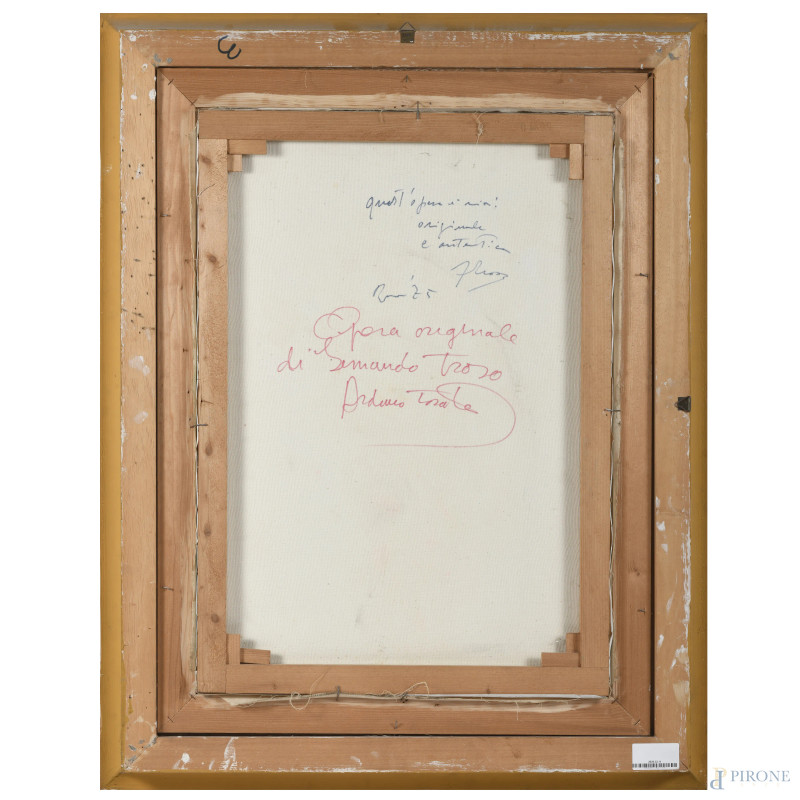 3
quest'opera è mia:
originale
e autentica
Roma '75
Opera originale
di Armando Troso
Arduino
PIRONE